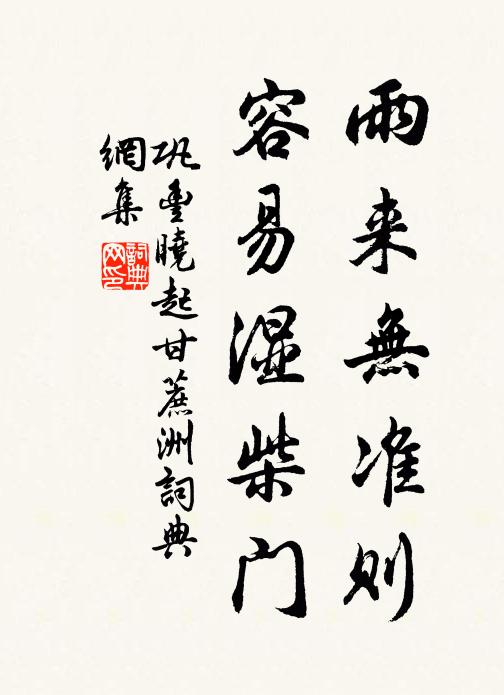 雨来無准则
容易湿柴门
巩豊曉起甘蔗洲詞典
網集
詞典
网印